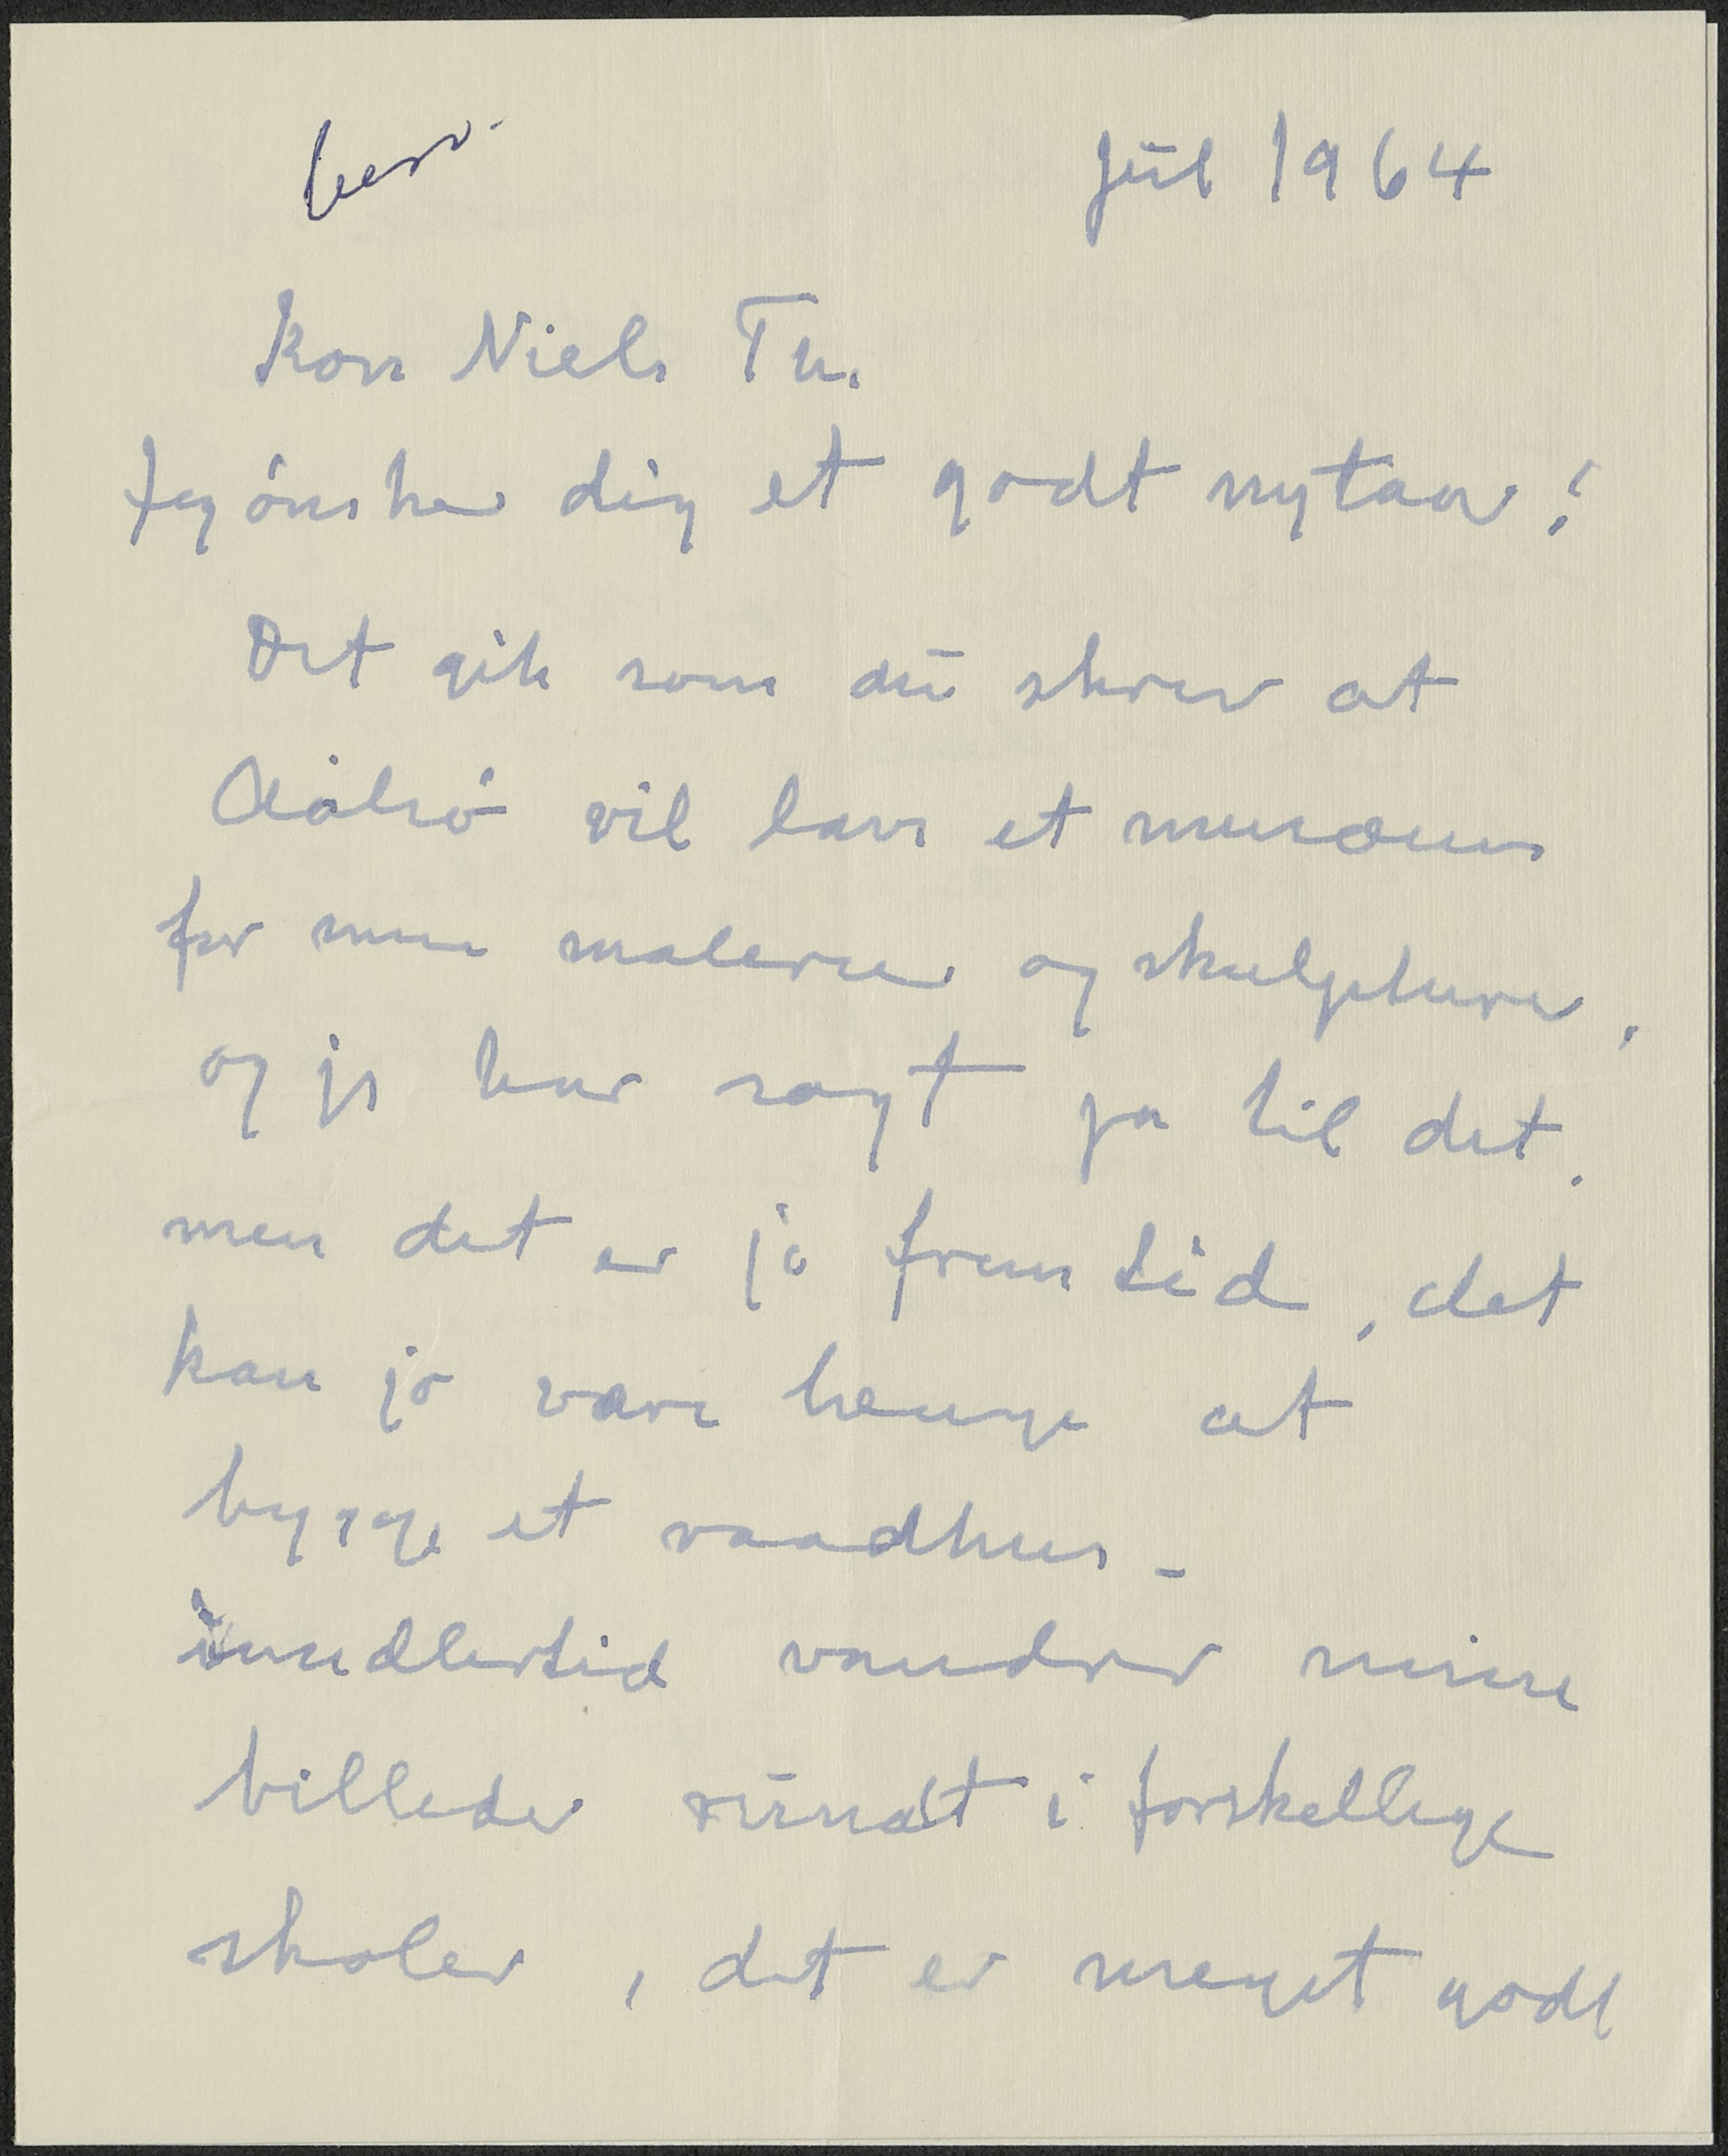 besv.
jul 1964
Kære Niels Th.
Jeg ønsker dig et godt nytaar!
Det gik som du skrev at
vil lave et musæum
for mine malerier og skulpturer,
og jeg har sagt ja til det.
men det er jo fremtid, det
kan jo være længe at
bygge et raadhus –
imidlertid vandrer mine
billeder rundt i forskellige
skoler, det er meget godt